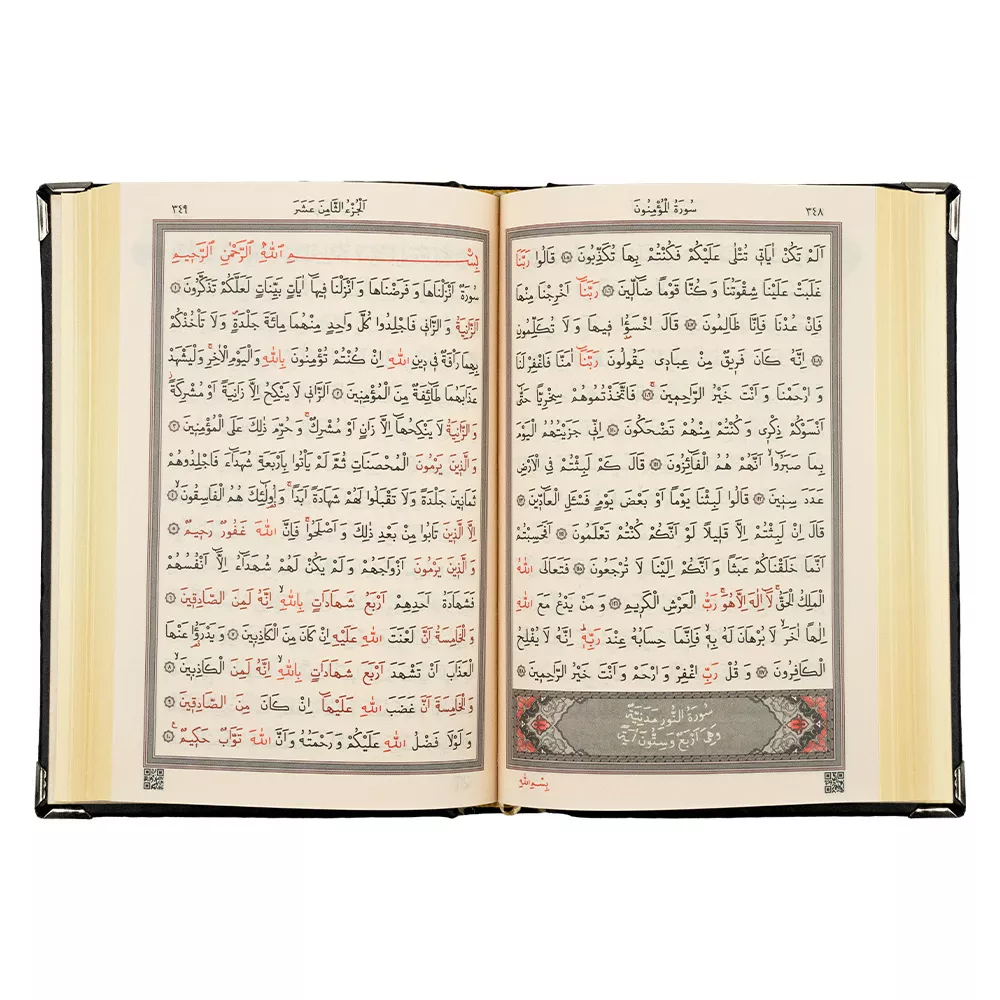 ٣٤٨
سُورَةُ الْمُؤْمِنُونَ
اَلَمْ تَكُنْ اٰيَاتٖى تُتْلٰى عَلَيْكُمْ فَكُنْتُمْ بِهَا تُكَذِّبُونَ ﴿١٠٥﴾ قَالُوا رَبَّنَا
غَلَبَتْ عَلَيْنَا شِقْوَتُنَا وَكُنَّا قَوْمًا ضَٓالّٖينَ ﴿١٠٦﴾ رَبَّنَٓا اَخْرِجْنَا مِنْهَا
فَاِنْ عُدْنَا فَاِنَّا ظَالِمُونَ ﴿١٠٧﴾ قَالَ اخْسَؤُ۫ا فٖيهَا وَلَا تُكَلِّمُونِ
﴿١٠٨﴾ اِنَّهُ كَانَ فَرٖيقٌ مِنْ عِبَادٖى يَقُولُونَ رَبَّنَٓا اٰمَنَّا فَاغْفِرْ لَنَا
وَارْحَمْنَا وَاَنْتَ خَيْرُ الرَّاحِمٖينَ ﴿١٠٩﴾ فَاتَّخَذْتُمُوهُمْ سِخْرِيًّا حَتّٰٓى
اَنْسَوْكُمْ ذِكْرٖى وَكُنْتُمْ مِنْهُمْ تَضْحَكُونَ ﴿١١٠﴾ اِنّٖى جَزَيْتُهُمُ الْيَوْمَ
بِمَا صَبَرُٓوا اَنَّهُمْ هُمُ الْفَٓائِزُونَ ﴿١١١﴾ قَالَ كَمْ لَبِثْتُمْ فِى الْاَرْضِ
عَدَدَ سِنٖينَ ﴿١١٢﴾ قَالُوا لَبِثْنَا يَوْمًا اَوْ بَعْضَ يَوْمٍ فَسْـَٔلِ الْعَٓادّٖينَ ﴿١١٣﴾
قَالَ اِنْ لَبِثْتُمْ اِلَّا قَلٖيلًا لَوْ اَنَّكُمْ كُنْتُمْ تَعْلَمُونَ ﴿١١٤﴾ اَفَحَسِبْتُمْ
اَنَّمَا خَلَقْنَاكُمْ عَبَثًا وَاَنَّكُمْ اِلَيْنَا لَا تُرْجَعُونَ ﴿١١٥﴾ فَتَعَالَى اللّٰهُ
الْمَلِكُ الْحَقُّ لَٓا اِلٰهَ اِلَّا هُوَ رَبُّ الْعَرْشِ الْكَرٖيمِ ﴿١١٦﴾ وَمَنْ يَدْعُ مَعَ اللّٰهِ
اِلٰهًا اٰخَرَ لَا بُرْهَانَ لَهُ بِهٖ فَاِنَّمَا حِسَابُهُ عِنْدَ رَبِّهٖ اِنَّهُ لَا يُفْلِحُ
الْكَافِرُونَ ﴿١١٧﴾ وَقُلْ رَبِّ اغْفِرْ وَارْحَمْ وَاَنْتَ خَيْرُ الرَّاحِمٖينَ ﴿١١٨﴾
سُورَةُ النُّورِ مَدَنِيَّةٌ
وَهِىَ اَرْبَعٌ وَسِتُّونَ اٰيَةً
بِسْمِ اللّٰهِ
اَلْجُزْءُ الثَّامِنَ عَشَرَ
٣٤٩
بِسْمِ اللّٰهِ الرَّحْمٰنِ الرَّحٖيمِ
سُورَةٌ اَنْزَلْنَاهَا وَفَرَضْنَاهَا وَاَنْزَلْنَا فٖيهَٓا اٰيَاتٍ بَيِّنَاتٍ لَعَلَّكُمْ تَذَكَّرُونَ ﴿١﴾
اَلزَّانِيَةُ وَالزَّانٖى فَاجْلِدُوا كُلَّ وَاحِدٍ مِنْهُمَا مِائَةَ جَلْدَةٍ وَلَا تَأْخُذْكُمْ
بِهِمَا رَأْفَةٌ فٖى دٖينِ اللّٰهِ اِنْ كُنْتُمْ تُؤْمِنُونَ بِاللّٰهِ وَالْيَوْمِ الْاٰخِرِ وَلْيَشْهَدْ
عَذَابَهُمَا طَٓائِفَةٌ مِنَ الْمُؤْمِنٖينَ ﴿٢﴾ اَلزَّانٖى لَا يَنْكِحُ اِلَّا زَانِيَةً اَوْ مُشْرِكَةً
وَالزَّانِيَةُ لَا يَنْكِحُهَٓا اِلَّا زَانٍ اَوْ مُشْرِكٌ وَحُرِّمَ ذٰلِكَ عَلَى الْمُؤْمِنٖينَ ﴿٣﴾
وَالَّذٖينَ يَرْمُونَ الْمُحْصَنَاتِ ثُمَّ لَمْ يَأْتُوا بِاَرْبَعَةِ شُهَدَٓاءَ فَاجْلِدُوهُمْ
ثَمَانٖينَ جَلْدَةً وَلَا تَقْبَلُوا لَهُمْ شَهَادَةً اَبَدًا وَاُولٰٓئِكَ هُمُ الْفَاسِقُونَ ﴿٤﴾
اِلَّا الَّذٖينَ تَابُوا مِنْ بَعْدِ ذٰلِكَ وَاَصْلَحُوا فَاِنَّ اللّٰهَ غَفُورٌ رَحٖيمٌ ﴿٥﴾
وَالَّذٖينَ يَرْمُونَ اَزْوَاجَهُمْ وَلَمْ يَكُنْ لَهُمْ شُهَدَٓاءُ اِلَّٓا اَنْفُسُهُمْ
فَشَهَادَةُ اَحَدِهِمْ اَرْبَعُ شَهَادَاتٍ بِاللّٰهِ اِنَّهُ لَمِنَ الصَّادِقٖينَ ﴿٦﴾
وَالْخَامِسَةُ اَنَّ لَعْنَتَ اللّٰهِ عَلَيْهِ اِنْ كَانَ مِنَ الْكَاذِبٖينَ ﴿٧﴾ وَيَدْرَؤُا عَنْهَا
الْعَذَابَ اَنْ تَشْهَدَ اَرْبَعَ شَهَادَاتٍ بِاللّٰهِ اِنَّهُ لَمِنَ الْكَاذِبٖينَ ﴿٨﴾
وَالْخَامِسَةَ اَنَّ غَضَبَ اللّٰهِ عَلَيْهَٓا اِنْ كَانَ مِنَ الصَّادِقٖينَ ﴿٩﴾
وَلَوْلَا فَضْلُ اللّٰهِ عَلَيْكُمْ وَرَحْمَتُهُ وَاَنَّ اللّٰهَ تَوَّابٌ حَكٖيمٌ ﴿١٠﴾